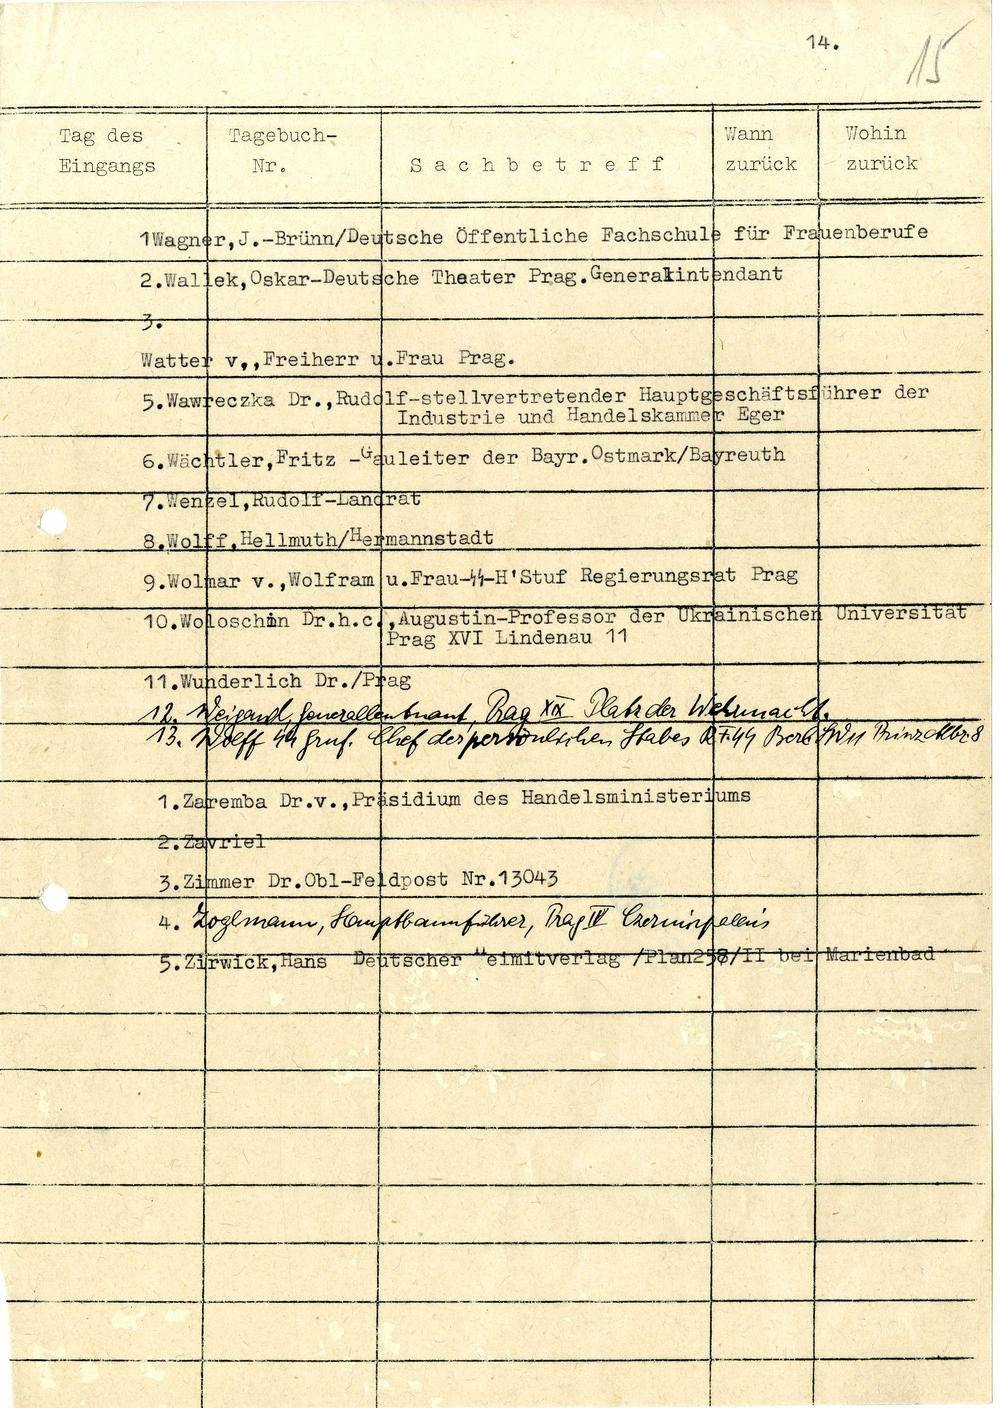 14.
15
Tag des Eingangs
Tagebuch-Nr.
Sachbetreff
Wann zurück
Wohin zurück
1Wagner,J.-Brünn/Deutsche Öffentliche Fachschule für Frauenberufe
2.Wallek,Oskar-Deutsche Theater Prag.Generalintendant
3.
Watter v,,Freiherr u.Frau Prag.
5.Wawreczka Dr.,Rudolf-stellvertretender Hauptgeschäftsführer der
Industrie und Handelskammer Eger
6.Wächtler,Fritz -Gauleiter der Bayr.Ostmark/Bayreuth
7.Wenzel,Rudolf-Landrat
8.Wolff,Hellmuth/Hermannstadt
9.Wolmar v.,Wolfram u.Frau-SS-H'Stuf Regierungsrat Prag
10.Woloschin Dr.h.c.,Augustin-Professor der Ukrainischen Universität
Prag XVI Lindenau 11
11.Wunderlich Dr./Prag
12. Weigand, Generalleutnant, Prag XIX Platz der Wehrmacht.
13. Wolff SS Gruf. Chef des persönlichen Stabes RFSS Berl. SW11 Prinz Albr. 8
1.Zaremba Dr.v.,Präsidium des Handelsministeriums
2.Zavriel
3.Zimmer Dr.Obl-Feldpost Nr.13043
4. Zoglmann, Hauptbannführer, Prag IV Czerninpalais
5.Zirwick,Hans Deutscher "eimitverlag /Plan258/II bei Marienbad